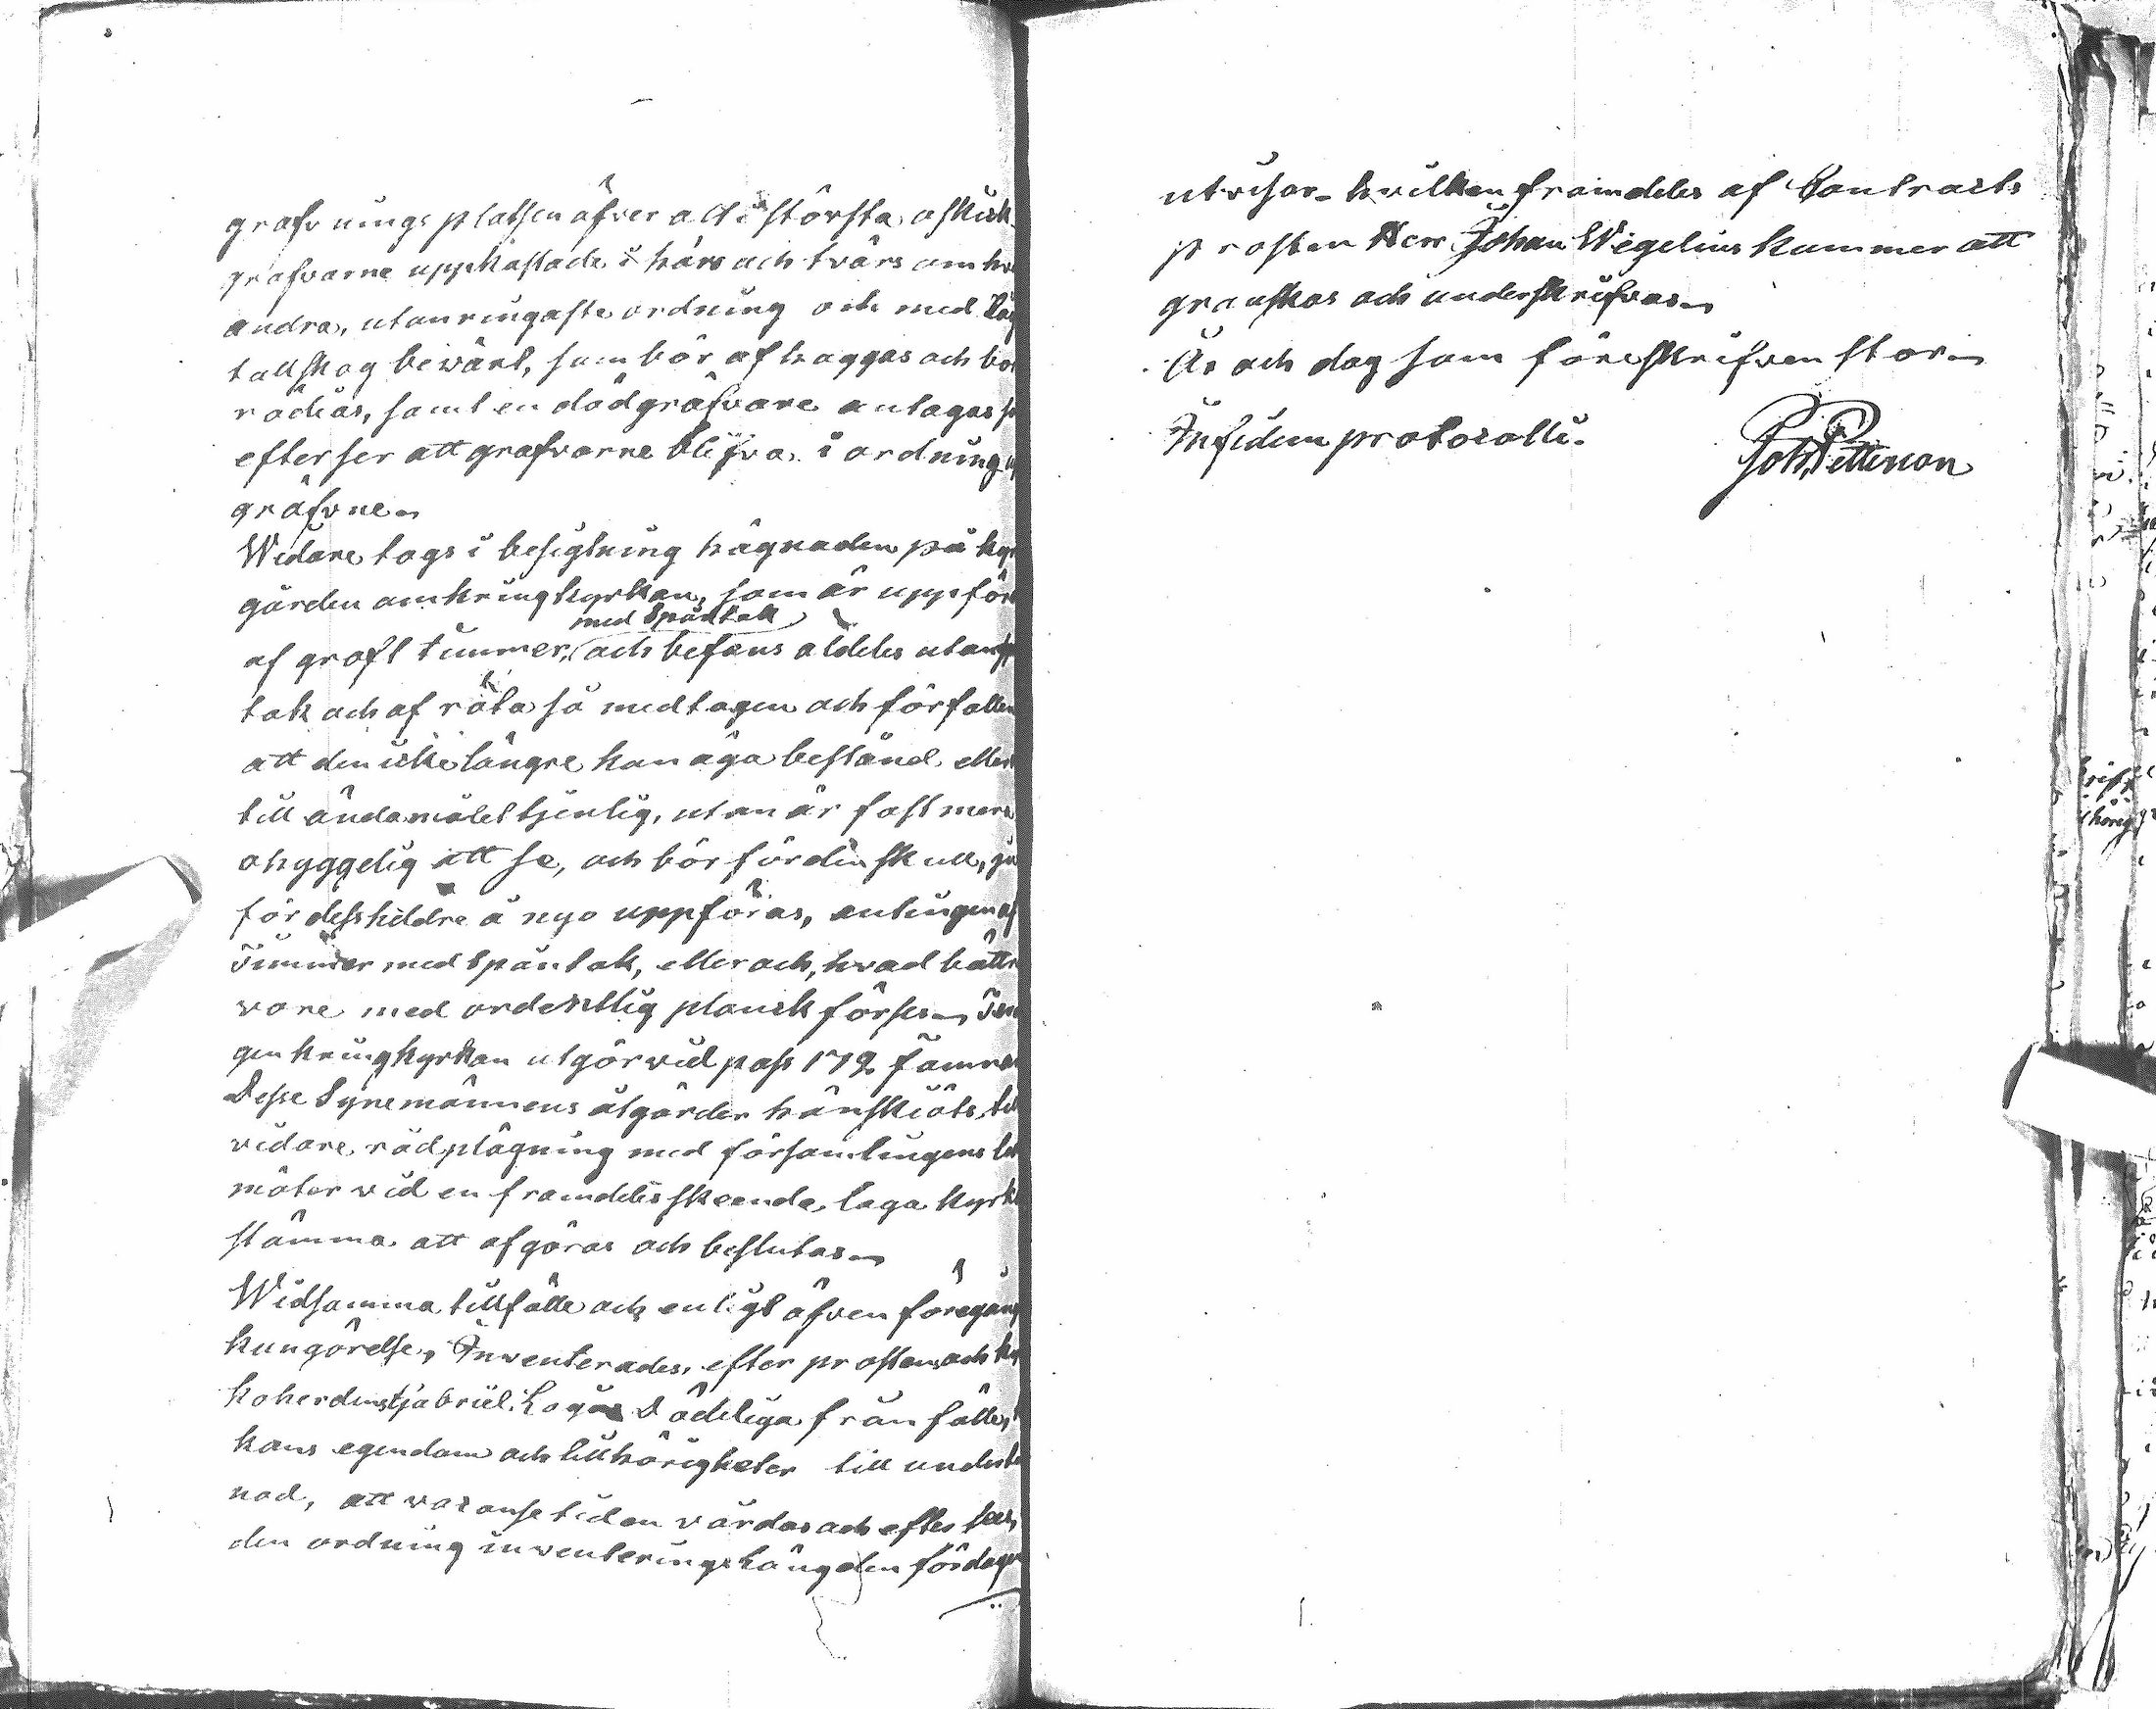 grafnings platsen öfver allt i största oskick
grafvarne uppkastade i kårs och tvårs om hv
andra, utan ringaste ordning och med
tallskog bewäxt, som bör afhuggas och bo
rödias, samt en dödgräfvare antagas
efterser att grafvarne blifva i ordning
gräfvne
Widare togs i besigtning hägnaden på kyr
gården omkring kyrkan, som är uppför
med Spåntak
af groft timmer, och befans aldeles utan
tak och af röta så medtagen och förfallen
att den icke längre kan äga bestånd eller
till ändamålet tjenlig, utan är fast mera
ohyggelig att se, och bör fördenskull, ju
för dess heldre å nyo uppföras, antingen af
Timmer med Spåntak, eller och, hvad bättre
vore med ordentlig planck förses
gen kring kyrkan utgör vid pass 172 famnar
Desse Synemännens åtgärder hänskiöts till
vidare rådplägning med församlingens led
möter vid en framdeles skeende laga kyrk
stämma att afgöras och beslutas
Wid samma tillfälle och enligt äfven föregång
kungörelse, Inventerades, efter prosten och ky
koherdens Gabriel Dödeliga frånfälle,
kans egendom och tillhörigheter till underrä
nad, att varanse tiden vårdas och efterses,
den ordning inventerings Längden fördager
utvisar hvilken framdeles af Contracts
prosten Herr Johan Wegelius kommer att
granskas och underskrifvas
År och dag som föreskrifven står
In fidem protocolli.
Joh. Petterson